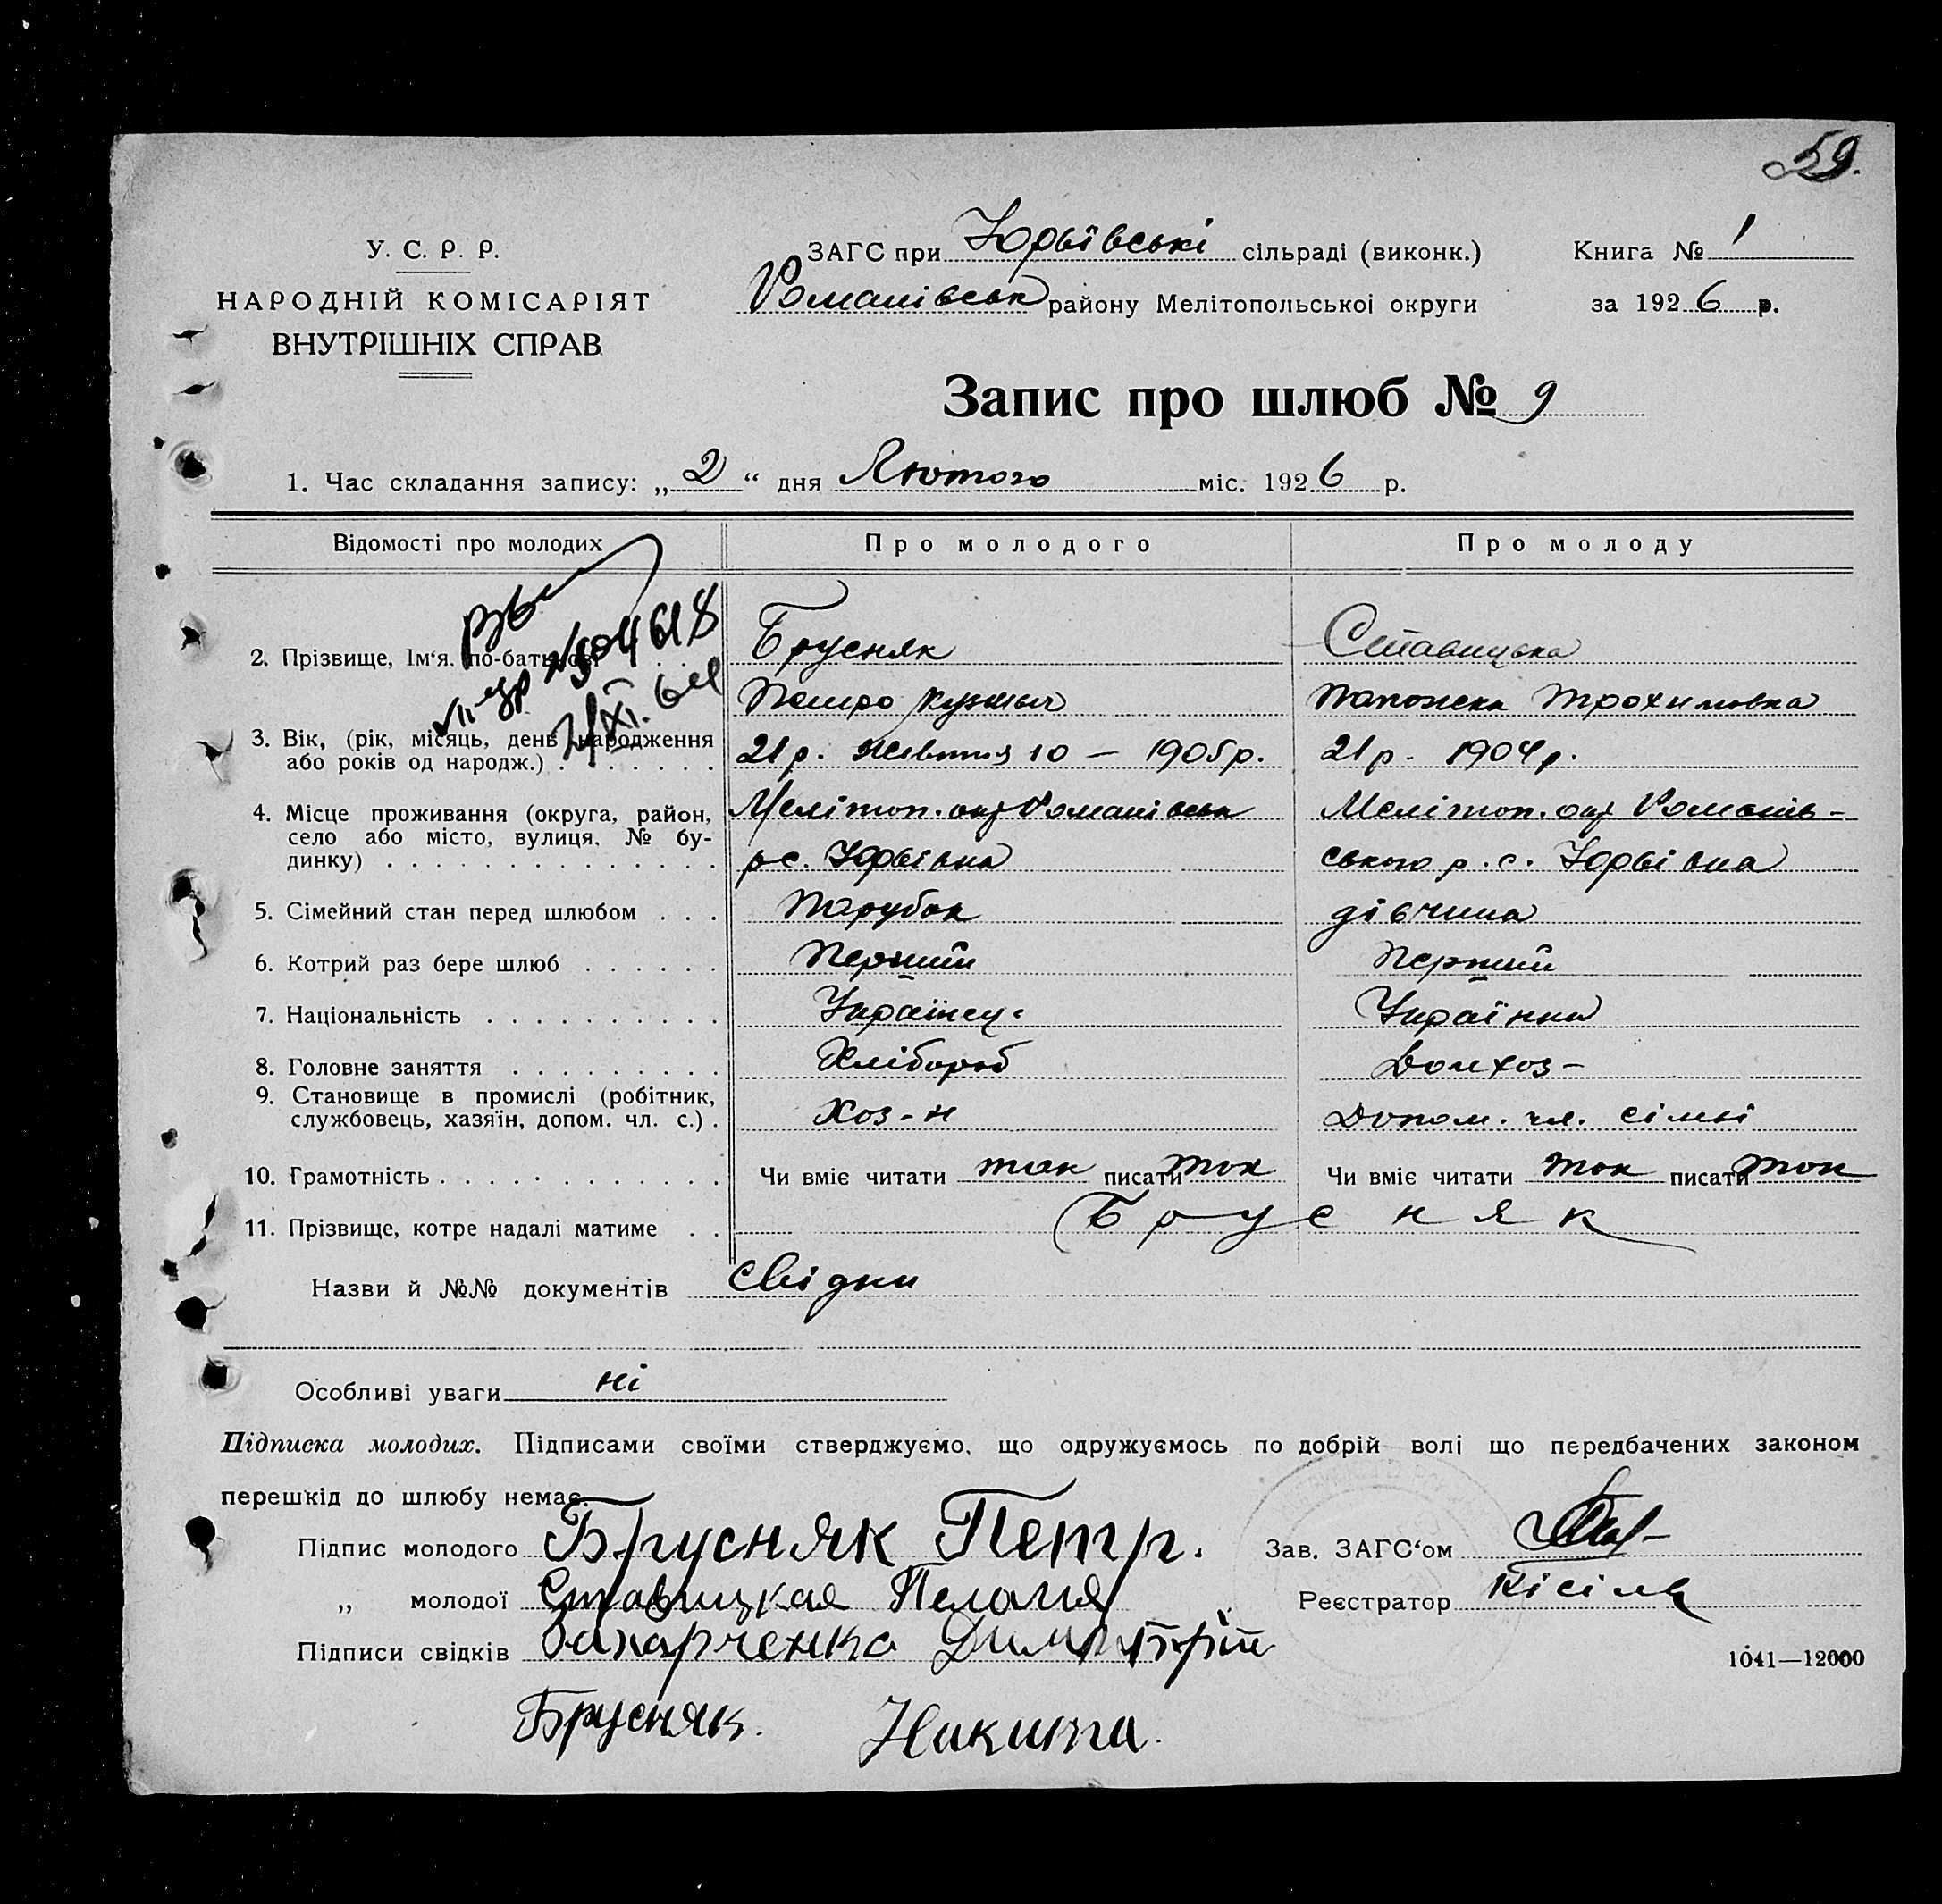 59.
У. С. Р. Р.
НАРОДНІЙ КОМІСАРІЯТ
ВНУТРІШНІХ СПРАВ
ЗАГС при Юрьївські сільраді (виконк.) Книга № 1
Романівськ району Мелітопольськоі округи за 1926 р.
Запис про шлюб № 9
1. Час складання запису: „2“ дня Лютого міс. 1926 р.
Відомості про молодих Про молодого Про молоду
2. Прізвище, Ім‘я. по-батькові Брусняк Ставицька
Петро Кузьмич Трохимовна
3. Вік, (рік, місяць, день народження 21 р. Жовтня 10 — 1905 р. 21 р. 1904 р.
або років од народж.)
4. Місце проживання (округа, район, Мелітоп. окр Романівськ Мелітоп. окр Романів-
село або місто, вулиця, № бу-
динку) р с. Юрьівка ського р. с. Юрьівка
5. Сімейний стан перед шлюбом Парубок дівчина
6. Котрий раз бере шлюб Перший Перший
7. Національність Українец Українка
8. Головне заняття Хлібороб Домхоз-
9. Становище в промислі (робітник,
службовець, хазяїн, допом. чл. с.) Хоз-н Допом. чл. сімьі
10. Грамотність Чи вміє читати так писати так Чи вміє читати так писати так
11. Прізвище, котре надалі матиме Брусняк
Назви й №№ документів Свідки
Особливі уваги ні
Підписка молодих. Підписами своїми стверджуємо, що одружуємось по добрій волі що передбачених законом
перешкід до шлюбу немає.
Підпис молодого Брусняк Петр. Зав. ЗАГС‘ом
„ молодої Ставицкая Пелагия Реєстратор Кісіль
Підписи свідків Захарченко Димитрій
1041—12000
Брусняк. Никита.